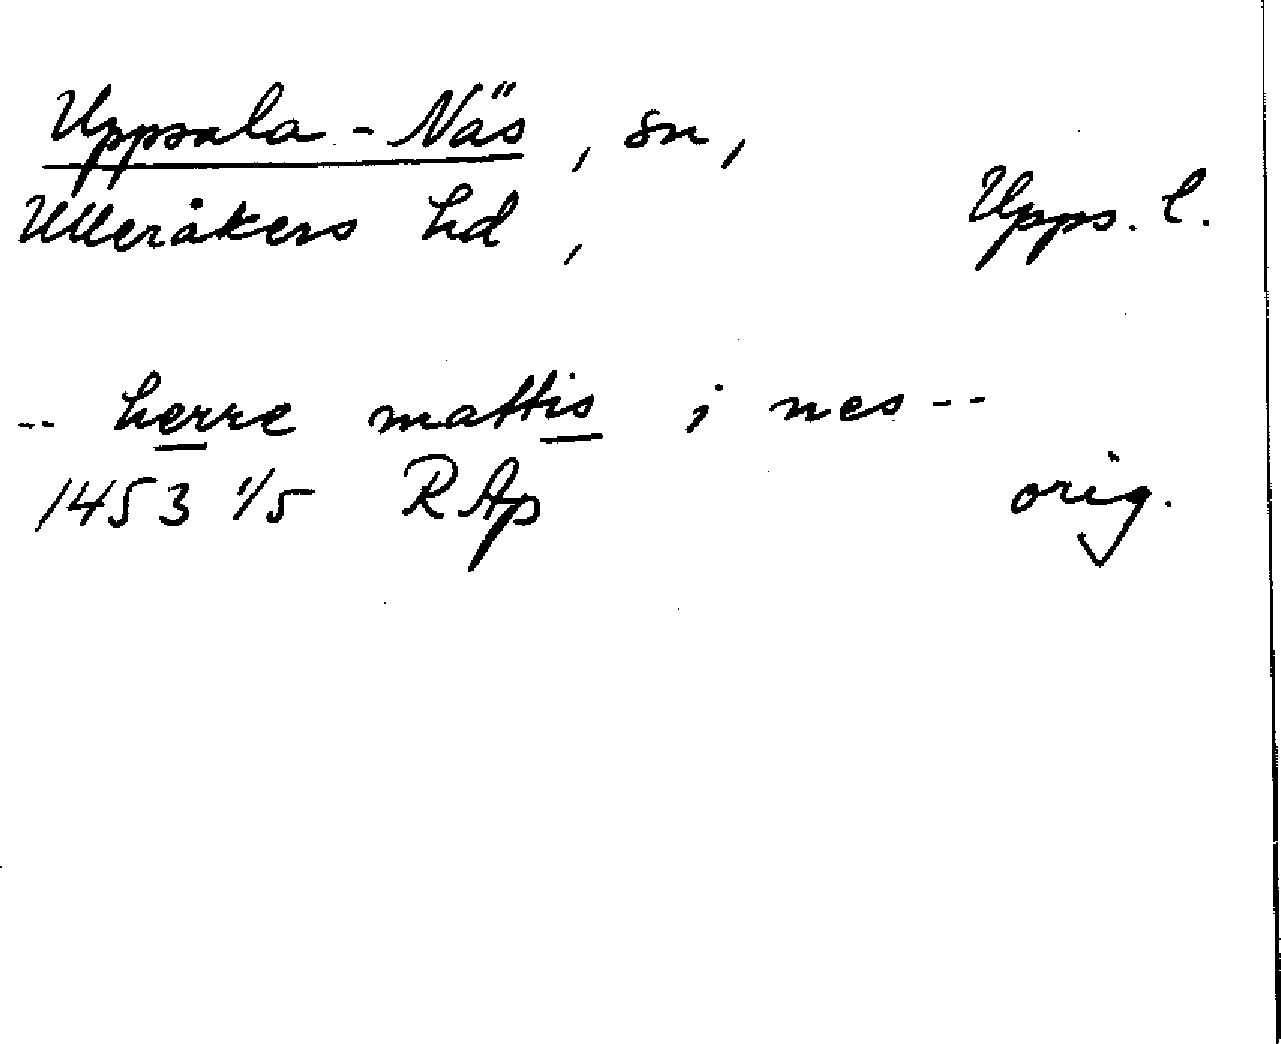 Uppsala-Näs, sn,
Ulleråkers hd, Upps. l.
-- herre mattis i nes --
1453 1/5 RAp orig.